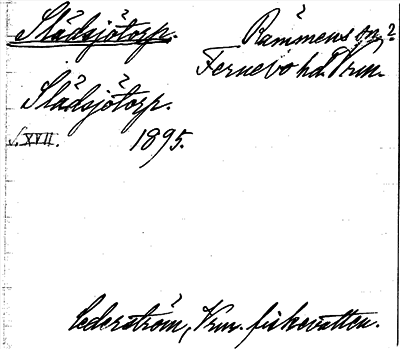 Slädsjötorp. Rämmens sn?
Fernebo hd. Vrm.
Slädsjötorp.
s. XVII. 1895.
Cederström, Vrm. fiskevatten.